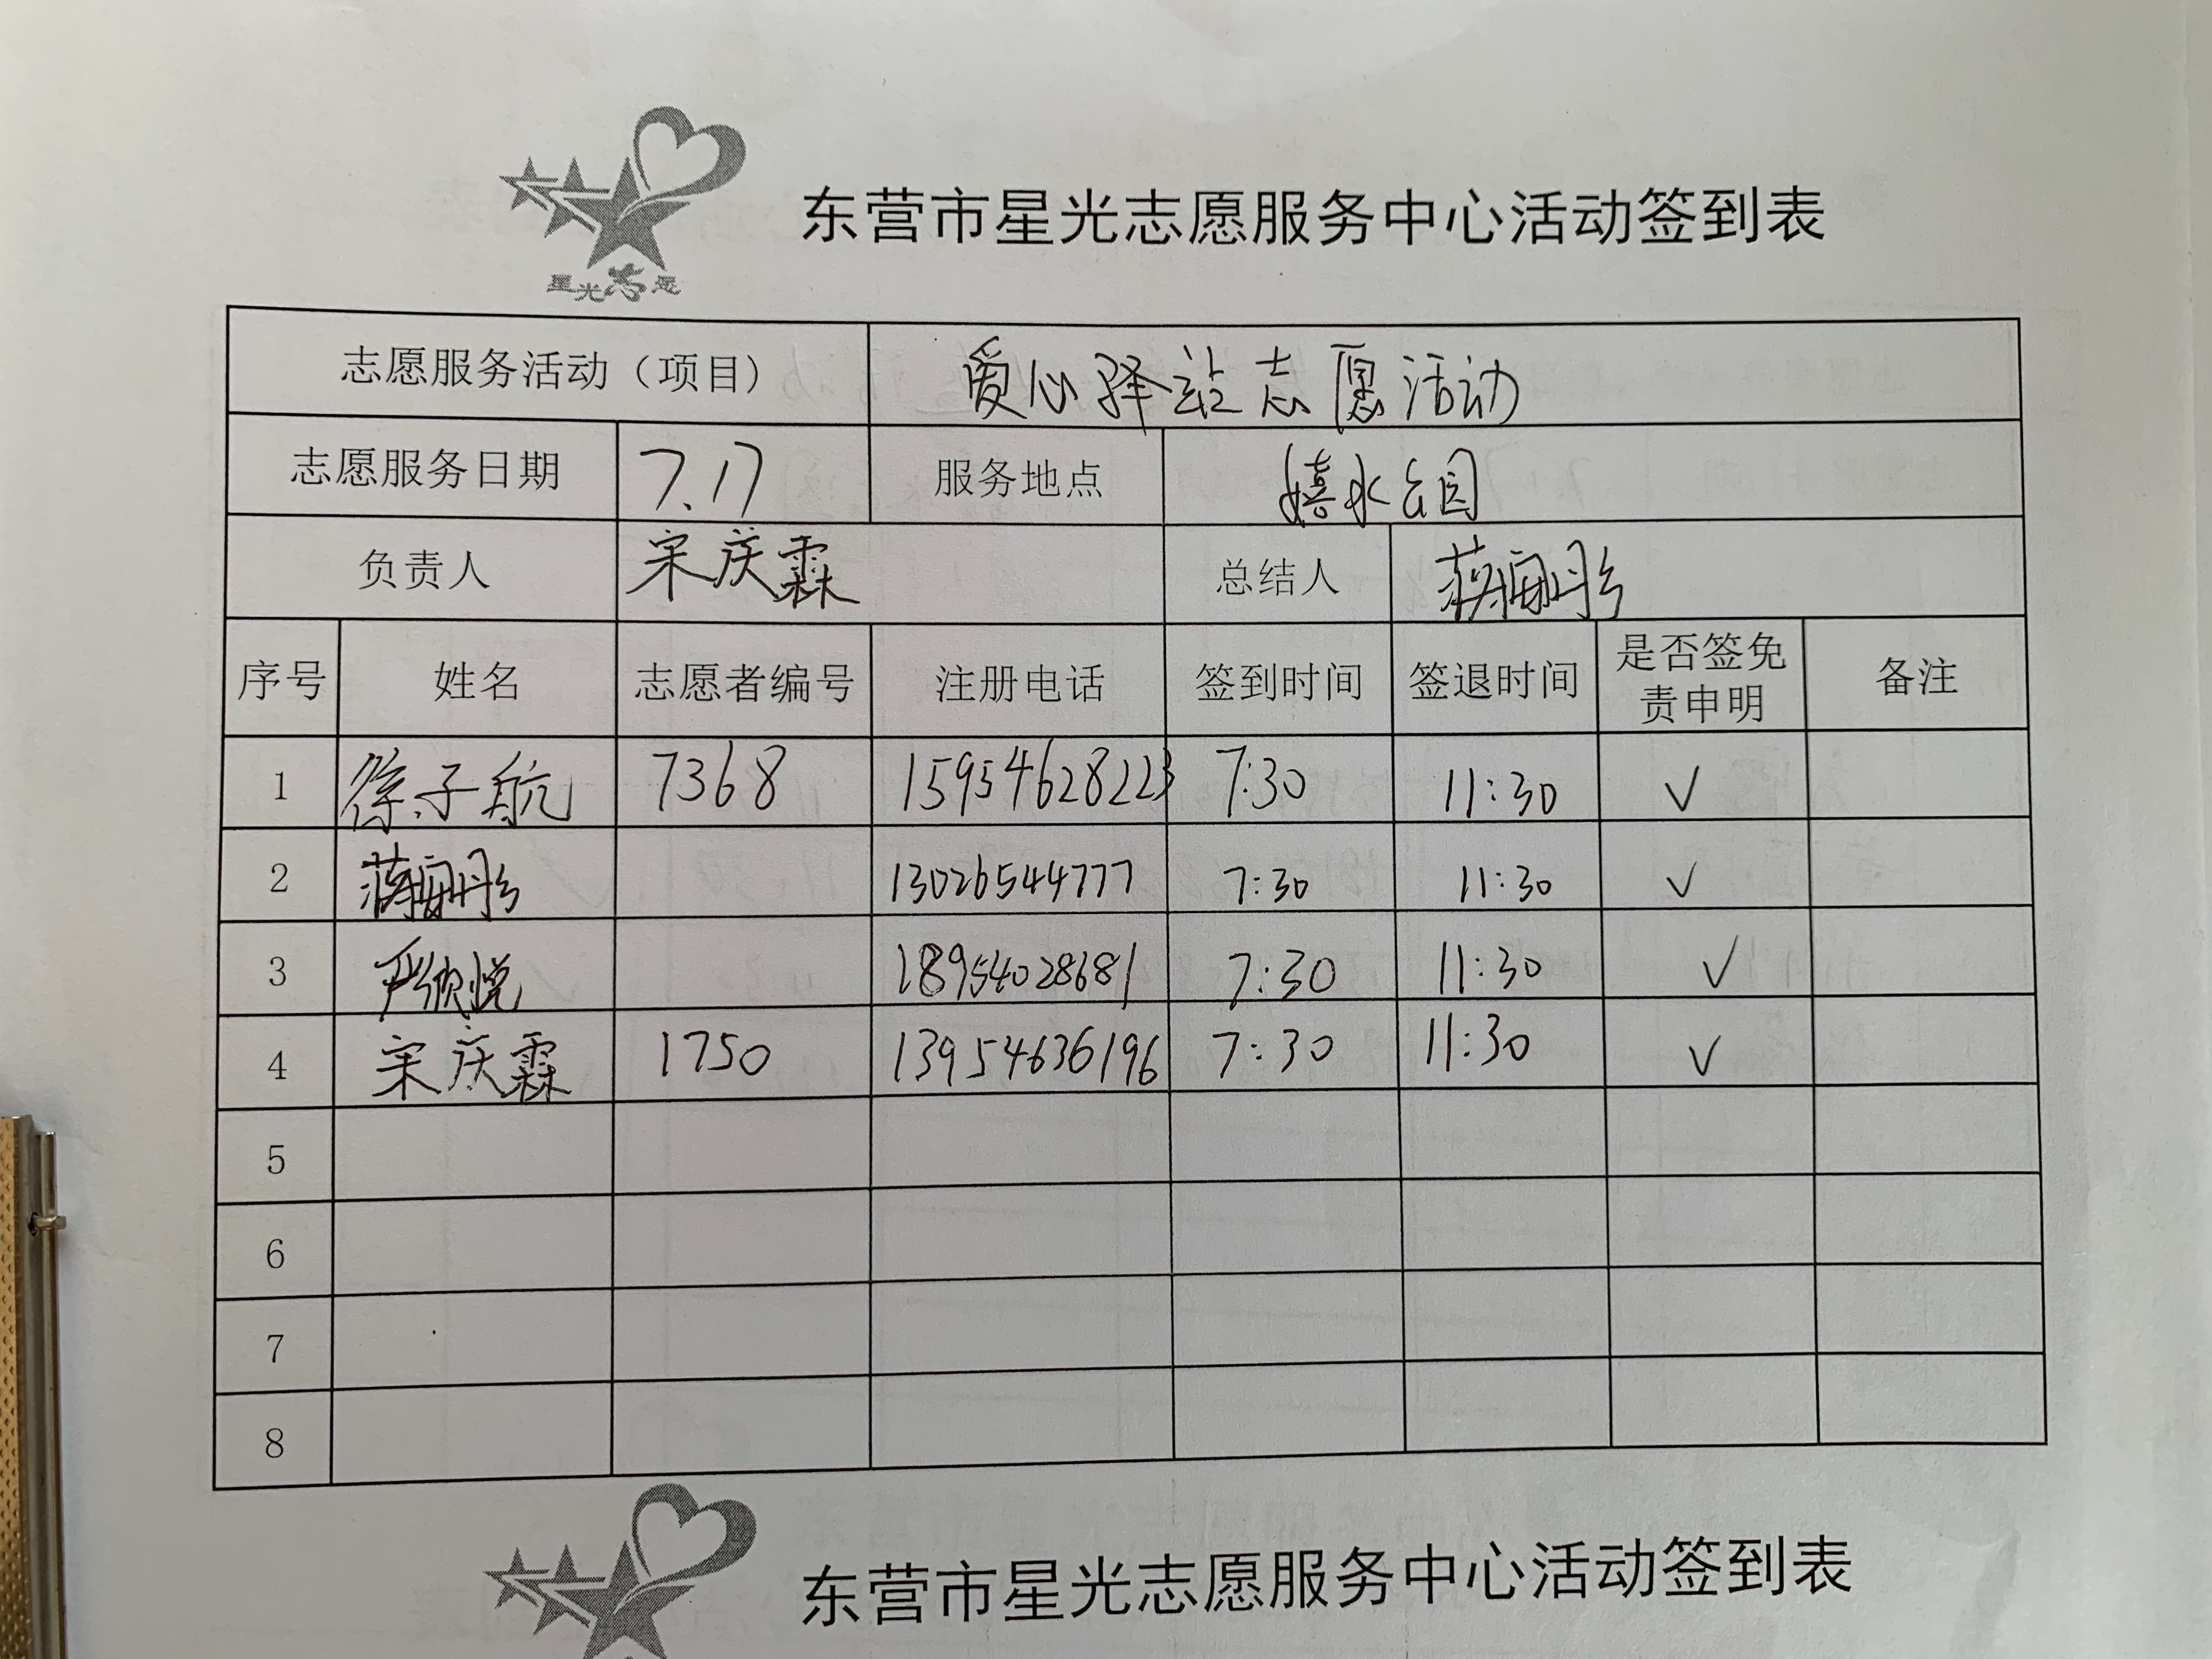 星光志愿
东营市星光志愿服务中心活动签到表
志愿服务活动（项目） 爱心驿站志愿活动
志愿服务日期 7.17 服务地点 嬉水公园
负责人 宋庆霖 总结人
序号 姓名 志愿者编号 注册电话 签到时间 签退时间 是否签免责申明 备注
1 徐子航 7368 15954628223 7:30 11:30 √
2 13026544777 7:30 11:30 √
3 18954028681 7:30 11:30 √
4 宋庆霖 1750 13954636196 7:30 11:30 √
5
6
7
8
东营市星光志愿服务中心活动签到表